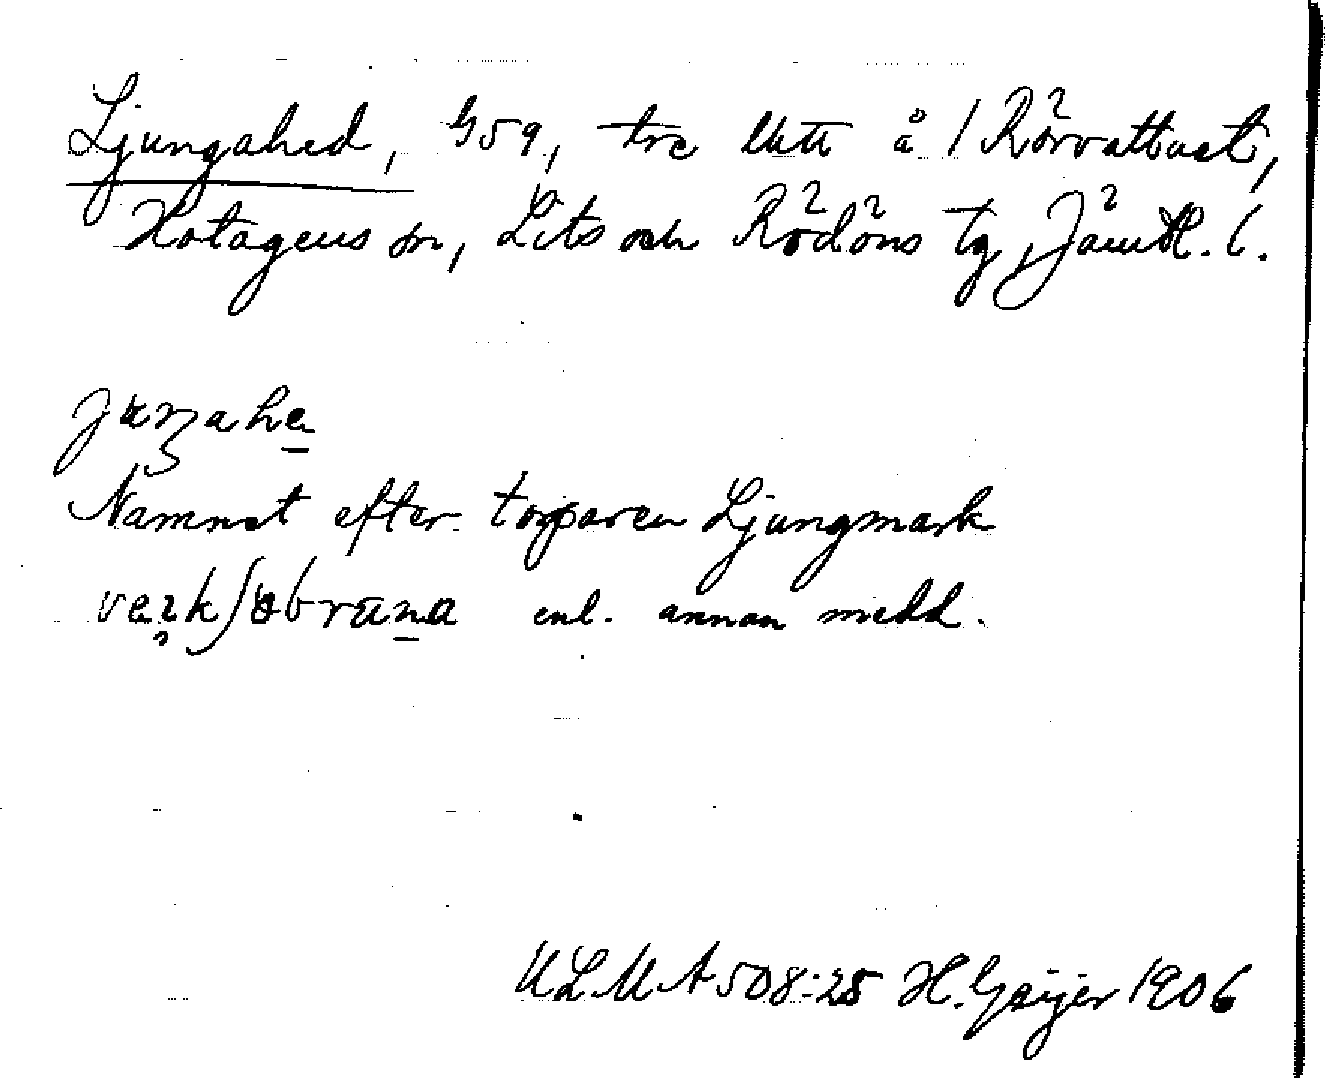 Ljungahed, G59, tre lhtt å 1 Rörvattnet,
Hotagens sn, Lits och Rödöns tg, Jämtl. l.
Namnet efter torparen Ljungmark
enl. annan medd.
ULMA 508:25 H. Geijer 1906